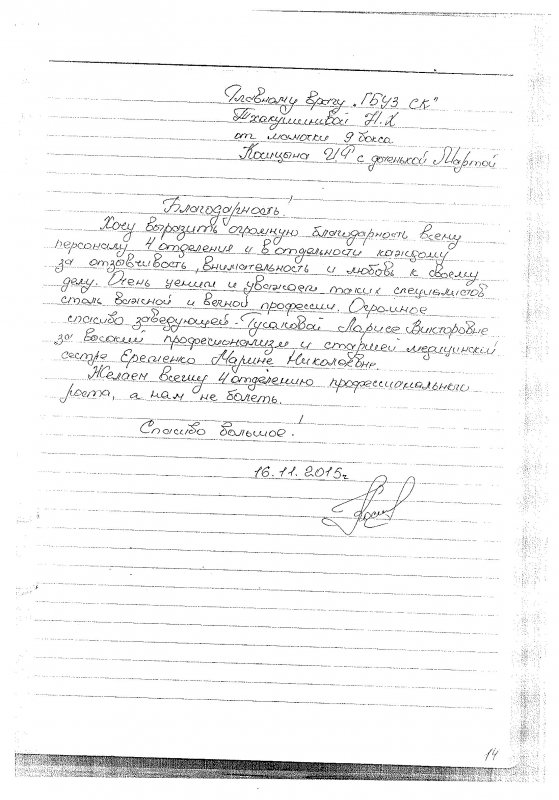 Главному врачу "ГБУЗ СК"
Тхакушиновой Н.Х
от мамочки 9 бокса
с доченькой Мартой
Благодарность!
Хочу выразить огромную благодарность всему
персоналу 4 отделения и в отдельности каждому
за отзывчивость, внимательность и любовь к своему
делу. Очень ценим и уважаем таких специалистов
столь важной и вечной профессии. Огромное
спасибо заведующей - Гусаковой Ларисе Викторовне
за высокий профессионализм и старшей медицинской
сестре Еременко Марине Николаевне.
Желаем всему 4 отделению профессионального
роста, а нам не болеть.
Спасибо большое!
16.11.2015г
14